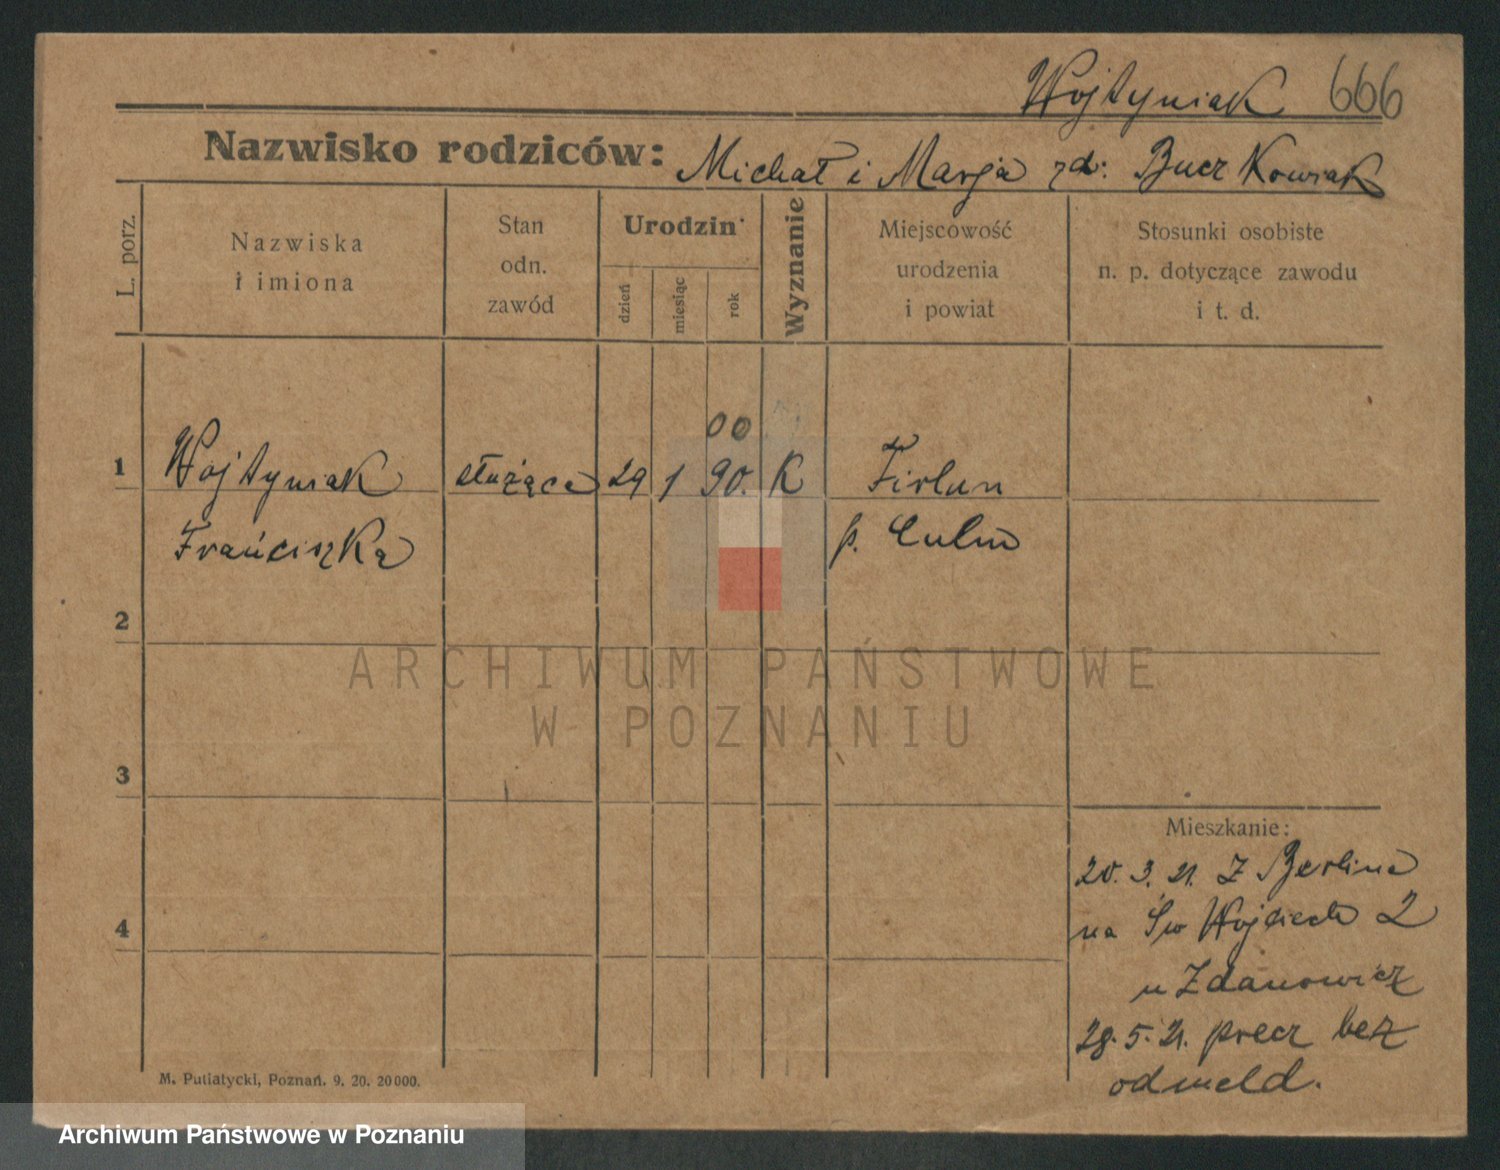 Wojtyniak 666
Nazwisko rodziców: Michał i Marja zd: Buczkowiak
L. porz.
Nazwiska
i imiona
Stan
odn.
zawód
Urodzin
dzień
miesiąc
rok
Wyznanie
Miejscowość
urodzenia
i powiat
Stosunki osobiste
n. p. dotyczące zawodu
i t. d.
00
1 Wojtyniak służąca 29 1 90. K Firlun
Franciszka p. Culm
2
ARCHIWUM PAŃSTWOWE
W POZNANIU
3
Mieszkanie:
20. 3. 21. Z Berlina
4 na Św Wojciech 2
u Zdanowicz
28. 5. 21. precz bez
odmeld.
M. Putiatycki, Poznań. 9. 20. 20000.
Archiwum Państwowe w Poznaniu